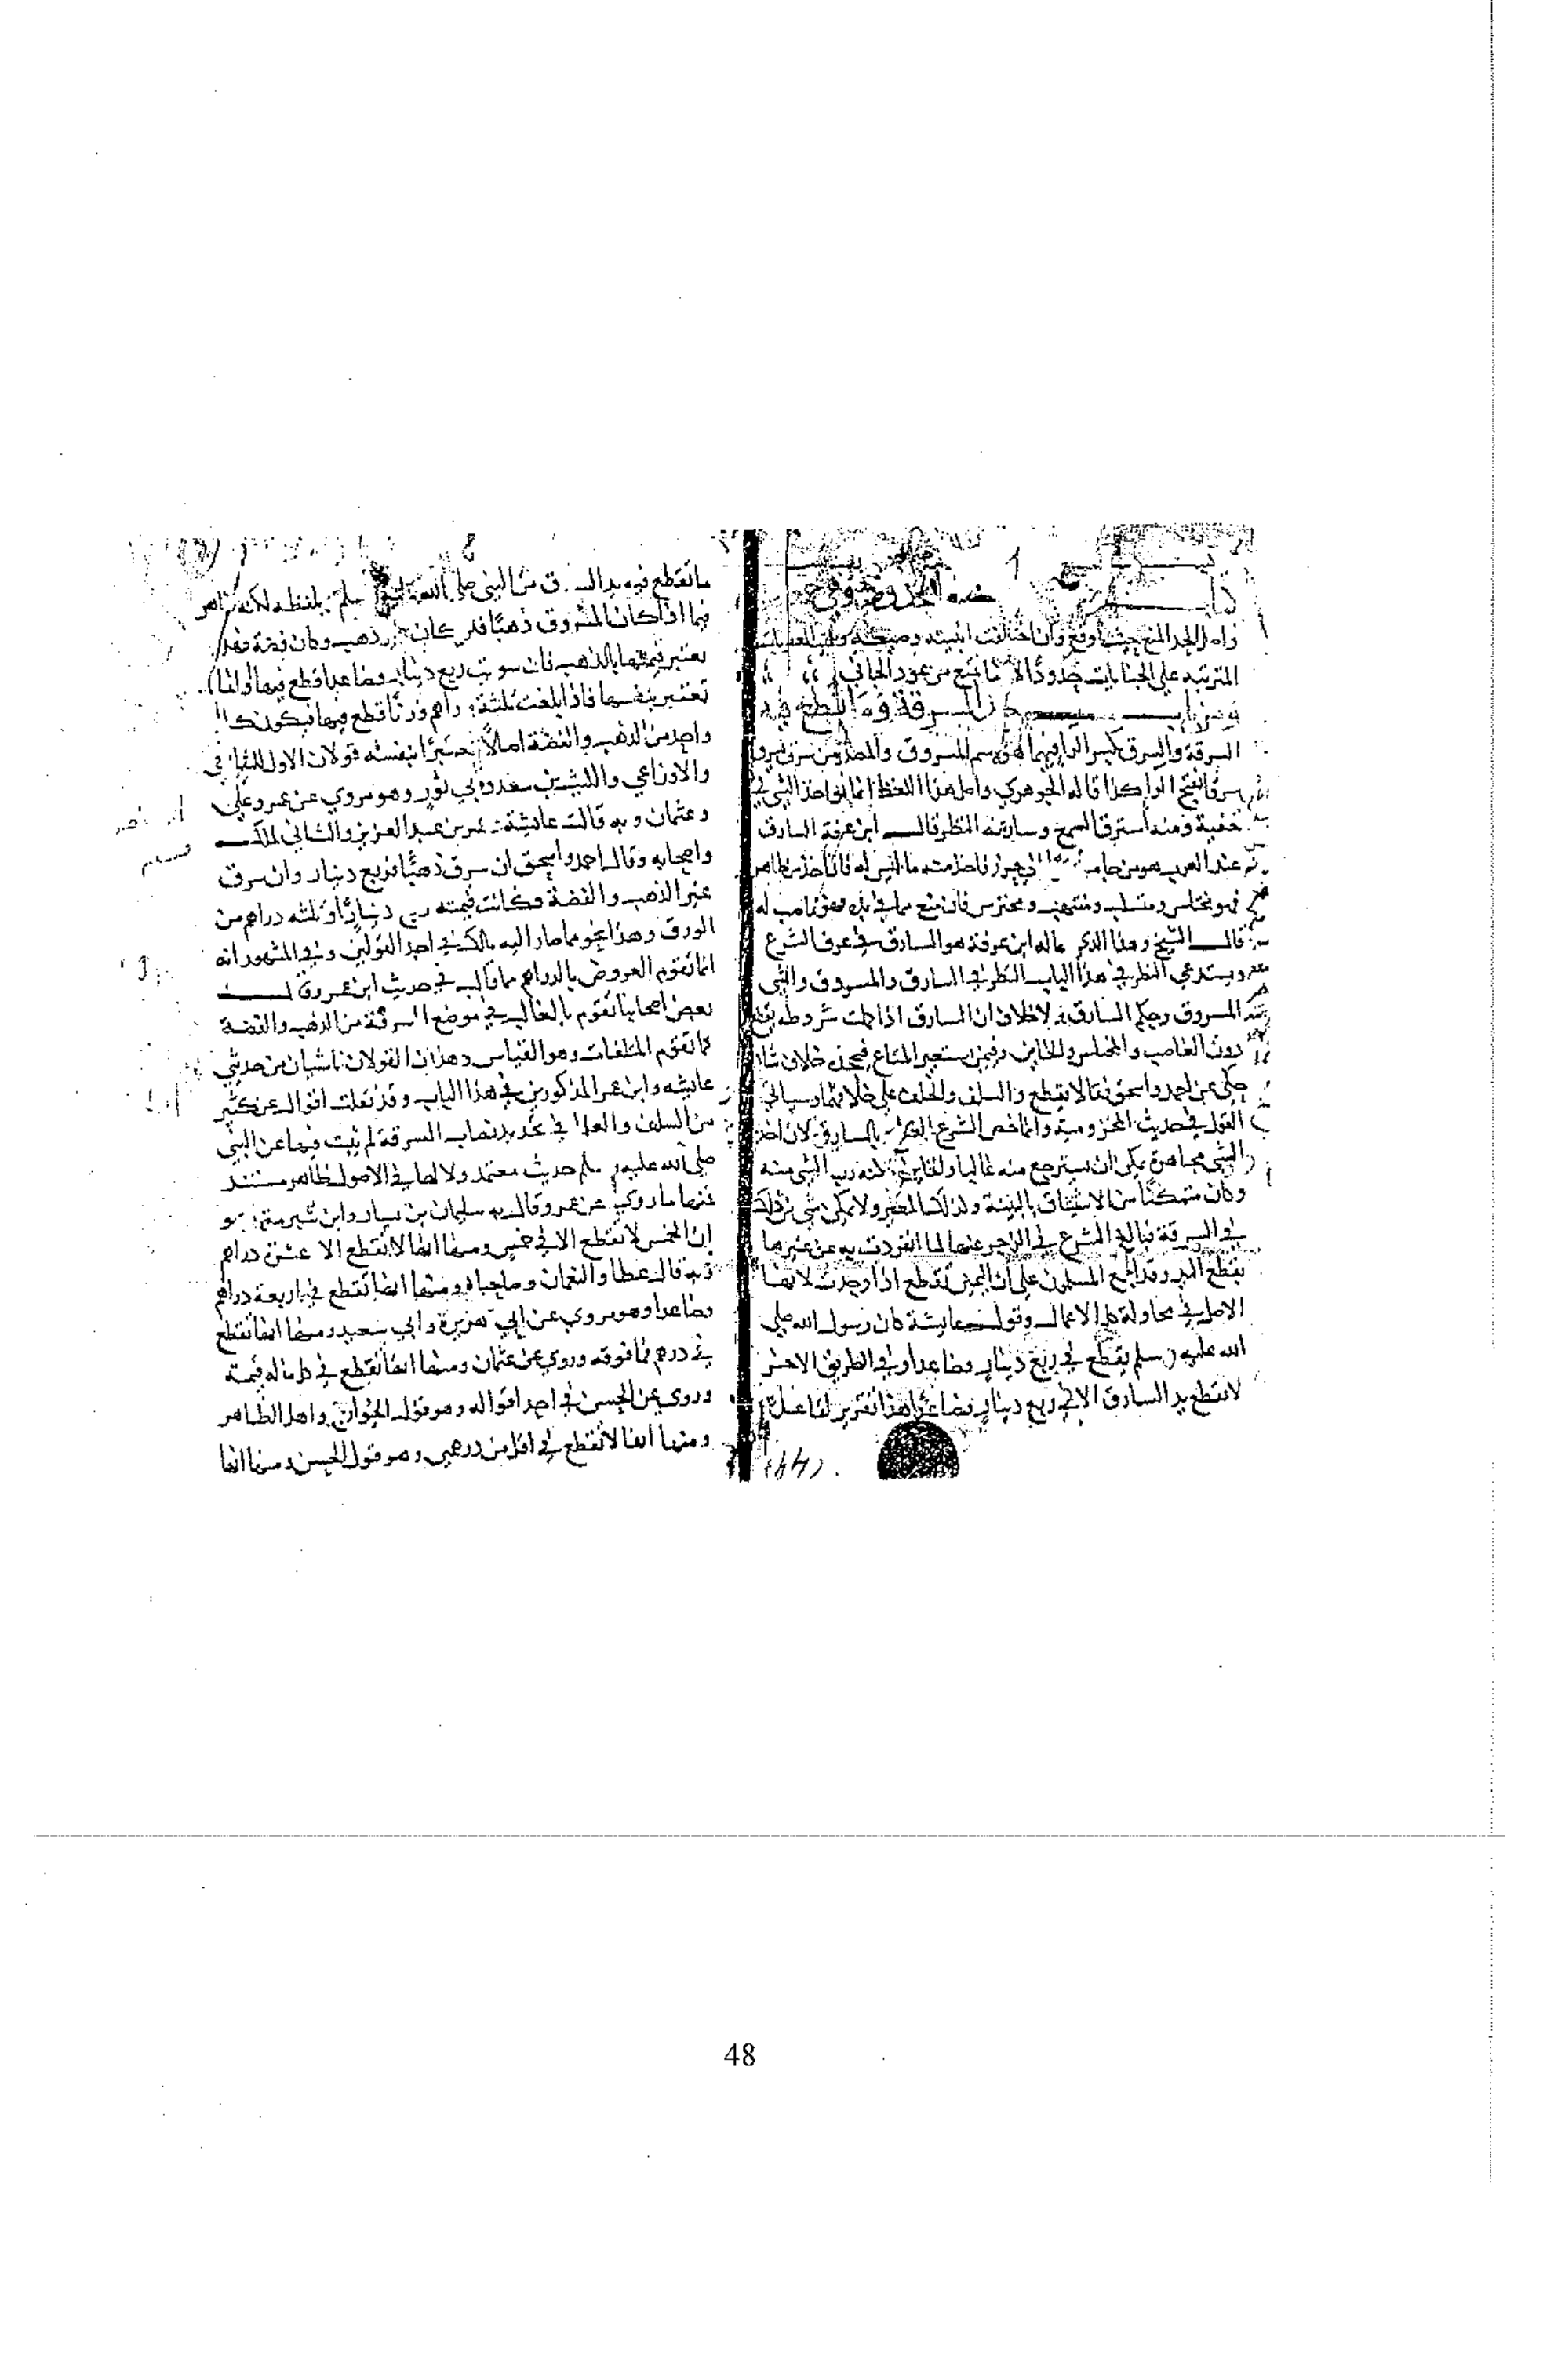 كتاب الحدود
واصل الحد المنع حيث وقع وان اختلفت ابنيته وصيغه وسميت العقوبات
المترتبه على الجنايات حدودا لانها تمنع من عود الجاني
ومن باب حد السرقة وما القطع فيه
السرقة والسرق بكسر الرا فيهما هو اسم المسروق والمصدر من سرق يسرق
سرقا بفتح الرا كذا قاله الجوهري واصل هذا اللفظ انما هو اخذ الشي في
خفية ومنه استرق السمع وسارقه النظر قال ابن عرفة السارق
عند العرب هو من جا الى حرز فاخذ منه ما ليس له فان اخذ من ظاهر
فهو مختلس ومستلب ومنتهب ومحترس فان منع مما في يده فهو غاصب له
قال الشيخ وهذا الذي قاله ابن عرفة هو السارق في عرف الشرع
ويستدعي النظر في هذا الباب النظر في السارق والمسروق والشي
المسروق وحكم السارق ولا خلاف ان السارق اذا كملت شروطه يقطع
دون الغاصب والمختلس والخاين وفيمن يستعير المتاع فيجحده خلاف شاذ
حكي عن احمد واسحق فقالا يقطع والسلف والخلف على خلافهما وسياتي
القول في حديث المخزومية وانما خص الشرع القطع بالسارق لان اخذ
الشي مجاهرة يمكن ان يسترجع منه غالبا
وكان متمكنا من الاستيثاق بالبينة وكذلك المعير ولا يمكن شي من ذلك
في السرقة فبالغ الشرع في الزجر عنها لما انفردت به عن غيرها
بقطع اليد وقد اجمع المسلمون على ان اليمين تقطع اذا وجدت لانها
الاصل في محاولة كل الاعمال وقول عايشة كان رسول الله صلى
الله عليه وسلم يقطع في ربع دينار فصاعدا وفي الطريق الاخر
لا تقطع يد السارق الا في ربع دينار فصاعدا هذا تقرير لقاعدة
ما تقطع فيه يد السارق من النبي صلى الله عليه وسلم بلفظه لكنه ظاهر
فيما اذا كان المسروق ذهبا فلو كان غير ذهب وكان فضة فهل
يعتبر قيمتها بالذهب فان سوت ربع دينار فصاعدا قطع فيها وانما
تعتبر بنفسها فاذا بلغت ثلثة دراهم وزنا قطع فيها فيكون كل
واحد من الذهب والفضة اصلا معتبرا بنفسه قولان الاول للشافعي
والاوزاعي والليث بن سعد وابي ثور وهو مروي عن عمر وعلي
وعثمان وبه قالت عايشة وعمر بن عبد العزيز والثاني لملك
واصحابه وقال احمد واسحق ان سرق ذهبا فربع دينار وان سرق
غير الذهب والفضة فكانت قيمته ربع دينار او ثلثه دراهم من
الورق وهذا نحو مما صار اليه مالك في احد القولين وفي المشهور انه
انما تقوم العروض بالدراهم كما قال في حديث ابن عمر وقال
بعض اصحابنا تقوم بالغالب في موضع السرقة من الذهب والفضة
كما تقوم المتلفات وهو القياس وهذان القولان ناشيان من حديثي
عايشه وابن عمر المذكورين في هذا الباب وقد نقلت اقوال عن كثير
من السلف والعلما في تحديد نصاب السرقة لم يثبت فيها عن النبي
صلى الله عليه وسلم حديث معتمد ولا لها في الاصول ظاهر مستند
فمنها ما روي عن عمر وقال به سليمان بن يسار وابن شبرمة وهو
ان الخمس لا تقطع الا في خمس ومنها ايضا لا تقطع الا عشرة دراهم
وبه قال عطا والنعمان وصاحباه ومنها ايضا تقطع في اربعة دراهم
فصاعدا وهو مروي عن ابي هريرة وابي سعيد ومنها ايضا تقطع
في درهم فما فوقه وروي عن عثمان ومنها ايضا تقطع في كل ما له قيمة
وروي عن الحسن في احد اقواله وهو قول الخوارج واهل الظاهر
ومنها ايضا لا تقطع في اقل من درهمين وهو قول الحسن ومنها ايضا
48